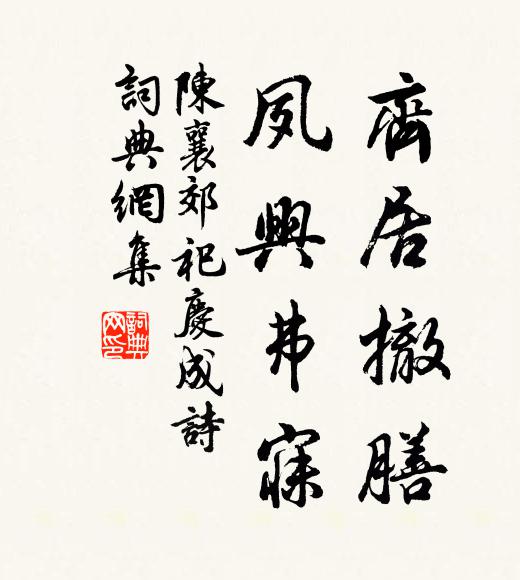 齊居撤膳
夙興弗寐
陳襄郊祀慶成詩
詞典網集
詞典網印